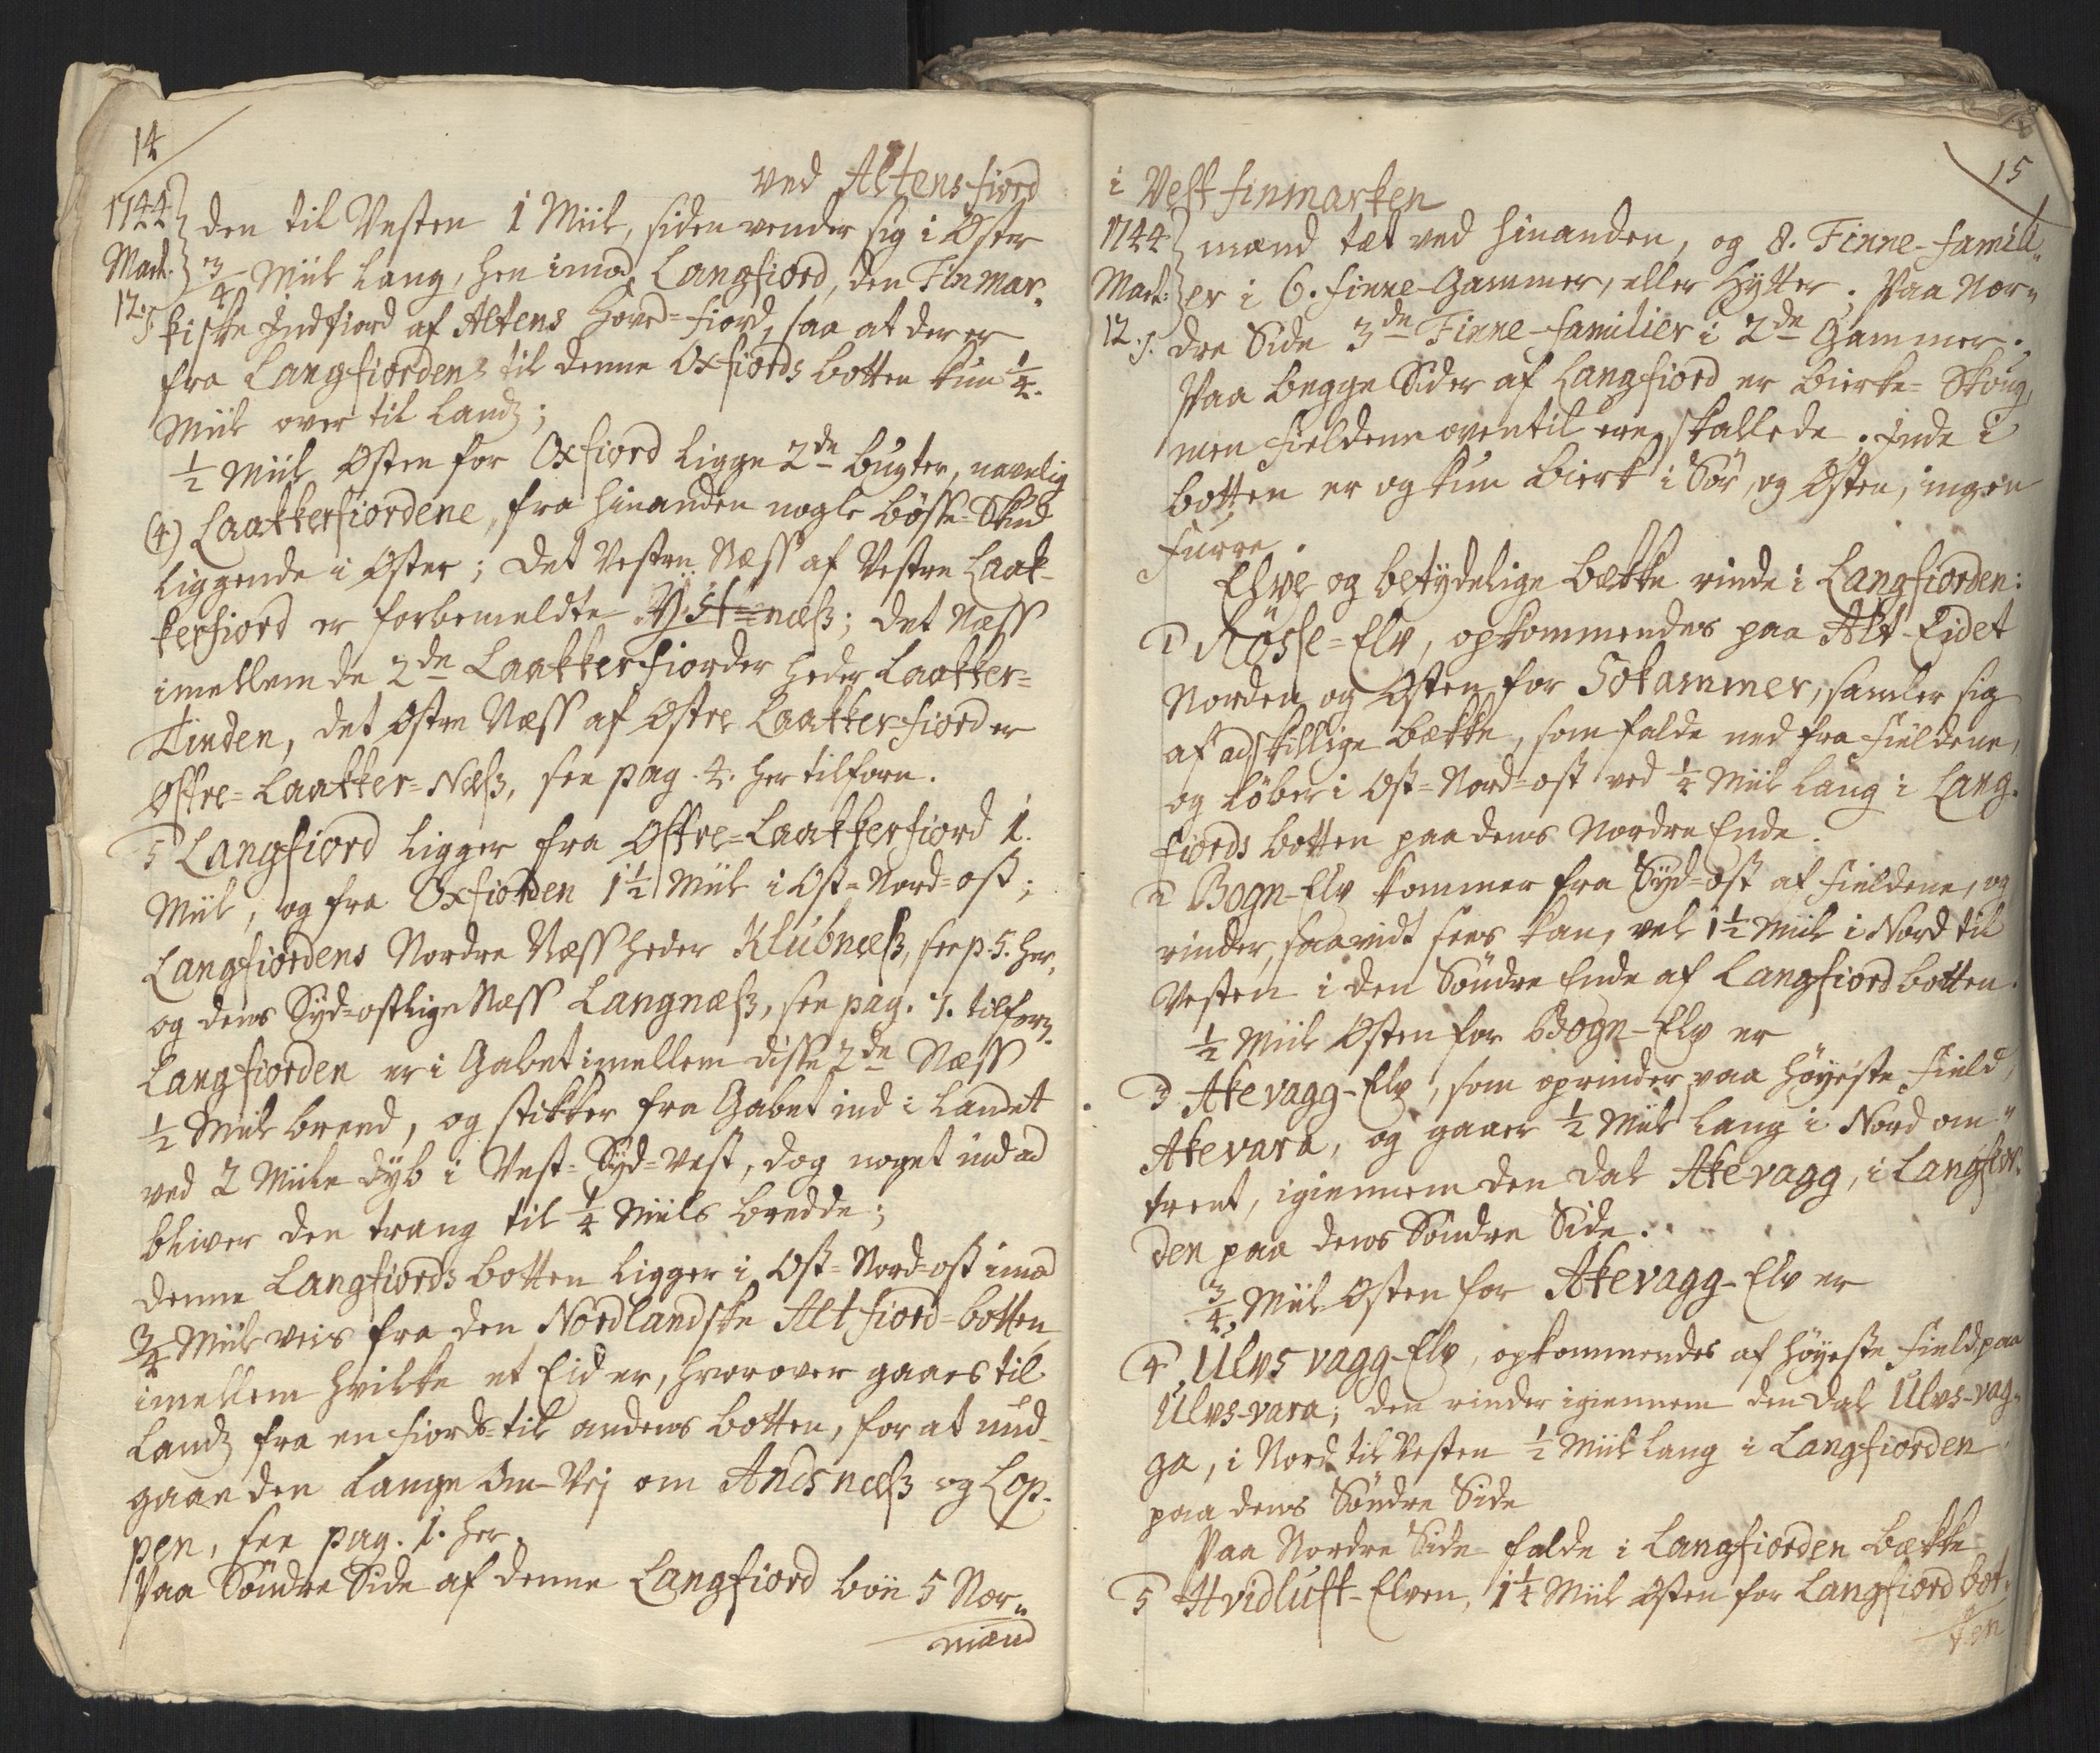 14
ved Altensfiord
1744 den til Vesten 1 Miil, siden vender sig i Øster
Mart. 3/4 Miil lang, hen imod Langfiord, den Finmar„
12. kiske Indfiord af Altens Hoved=fiord, saa at der er
fra Langfiordens til denne Oxfiords botten kun 1/4.
Miil over til Lands;
1/2 Miil Østen for Oxfiord ligge 2de bugter, navnlig
(4) Laakkerfiordene, fra hinanden nogle bösse-Skud
liggende i Øster; det Vestre Næss af Vestre Laak-
kerfiord er forbemeldte Nyst=næss; det Næss
imellem de 2de Laakkerfiorder heder Laakker=
Tinden, det Østre Næss af Østre Laakker-fiord er
Østre=Laakker=Næss, see pag. 4. her tilforn.
5 Langfiord ligger fra Østre=Laakkerfiord 1.
Miil, og fra Oxfiorden 1 1/2 Miil i Ost=Nord=ost;
Langfiordens Nordre Næss heder Klubnæss, see p. 5. her,
og dens Syd=ostlige Næss Langnæss, see pag. 7. tilforn.
Langfiorden er i Gabet imellem disse 2de Næss
1/2 Miil breed, og stikker fra Gabet ind i Landet
ved 2 Miile dyb i Vest=Syd=Vest, dog noget ind ad
bliver den trang til 1/4 Miils bredde;
denne Langfiords botten ligger i Ost=Nord=ost imod
3/4 Miil veis fra den Nordlandske Altfiord=botten,
imellem hvilke et Eid er, hvorover gaaes til
Lands fra en fiords- til andens botten, for at und-
gaae den lange Om-Vej om Andsnæss og Lop-
pen, see pag. 1. her.
Paa Søndre Side af denne Langfiord boe 5 Nor„
mænd
15
i Vest finmarken
1744 mænd tæt ved hinanden, og 8. Finne-famili„
Mart: er i 6. finne-Gammer, eller Hytter. Paa Nor„
12. dre Side 3de Finne-familier i 2de Gammer.
Paa begge Sider af Langfiord er birke-Skoug,
men fieldene oventil ere skallede. Inde i
botten er og kun birk i Sør, og Østen, ingen
Furre.
Elve og betydelige bække rinde i Langfiorden:
1 Røsse=Elv, opkommendes paa Alt-Eidet
Norden og Østen for Sokammer, samler sig
af adskillige bække, som falde ned fra fieldene,
og løber i Ost=Nord=ost ved 1/4 Miil lang i Lang-
fiords botten paa dens Nordre Ende.
2 Bogn-Elv kommer fra Syd=ost af fieldene, og
rinder, saavidt sees kan, vel 1 1/2 Miil i Nord til
Vesten i den Søndre Ende af Langfiord botten.
1/2 Miil Østen for Bogn-Elv er
3 Akevagg-Elv, som oprinder paa høyeste field,
Akevara, og gaaer 1/2 Miil lang i Nord om„
trent, igiennem den dal Akevagg, i Langfior-
den paa dens Søndre Side.
3/4 Miil Østen for Akevagg-Elv er
4, Ulvs vagg-Elv, opkommendes af høyeste field paa
Ulvs-vara; den rinder igiennem den dal Ulvs-vag„
ga, i Nord til Vesten 1/2 Miil lang i Langfiorden
paa dens Søndre Side
Paa Nordre Side falde i Langfiorden bække
5 Hvidluft-Elven, 1 1/4 Miil Østen for Langfiord bot„
ten